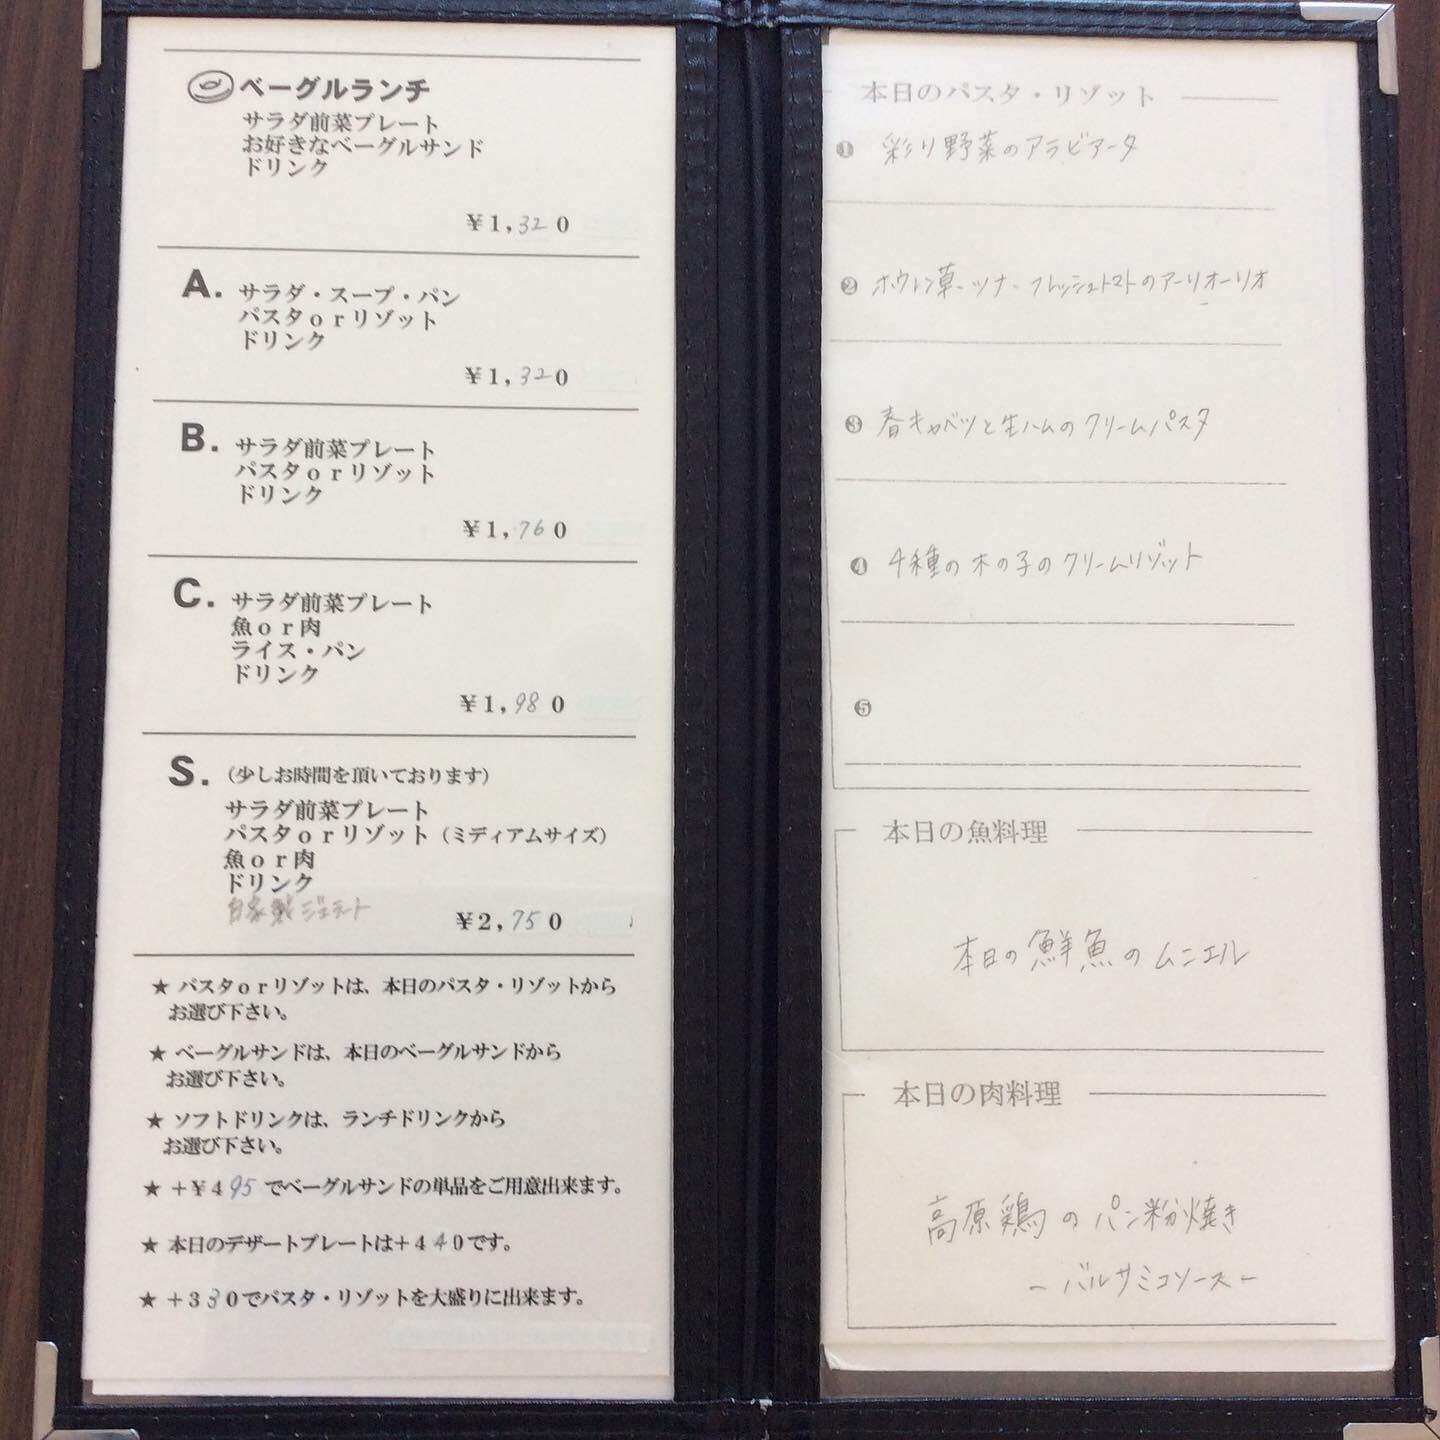 ベーグルランチ
サラダ前菜プレート
お好きなベーグルサンド
ドリンク
¥1,320
A. サラダ・スープ・パン
パスタorリゾット
ドリンク
¥1,320
B. サラダ前菜プレート
パスタorリゾット
ドリンク
¥1,760
C. サラダ前菜プレート
魚or肉
ライス・パン
ドリンク
¥1,980
S. (少しお時間を頂いております)
サラダ前菜プレート
パスタorリゾット(ミディアムサイズ)
魚or肉
ドリンク
自家製ジェラート
¥2,750
★ パスタorリゾットは、本日のパスタ・リゾットから
お選び下さい。
★ ベーグルサンドは、本日のベーグルサンドから
お選び下さい。
★ ソフトドリンクは、ランチドリンクから
お選び下さい。
★ +¥495でベーグルサンドの単品をご用意出来ます。
★ 本日のデザートプレートは+440です。
★ +330でパスタ・リゾットを大盛りに出来ます。
本日のパスタ・リゾット
❶ 彩り野菜のアラビアータ
❷ ホウレン草・ツナ・フレッシュトマトのアーリオーリオ
❸ 春キャベツと生ハムのクリームパスタ
❹ 4種の木の子のクリームリゾット
❺
本日の魚料理
本日の鮮魚のムニエル
本日の肉料理
高原鶏のパン粉焼き
-バルサミコソース-